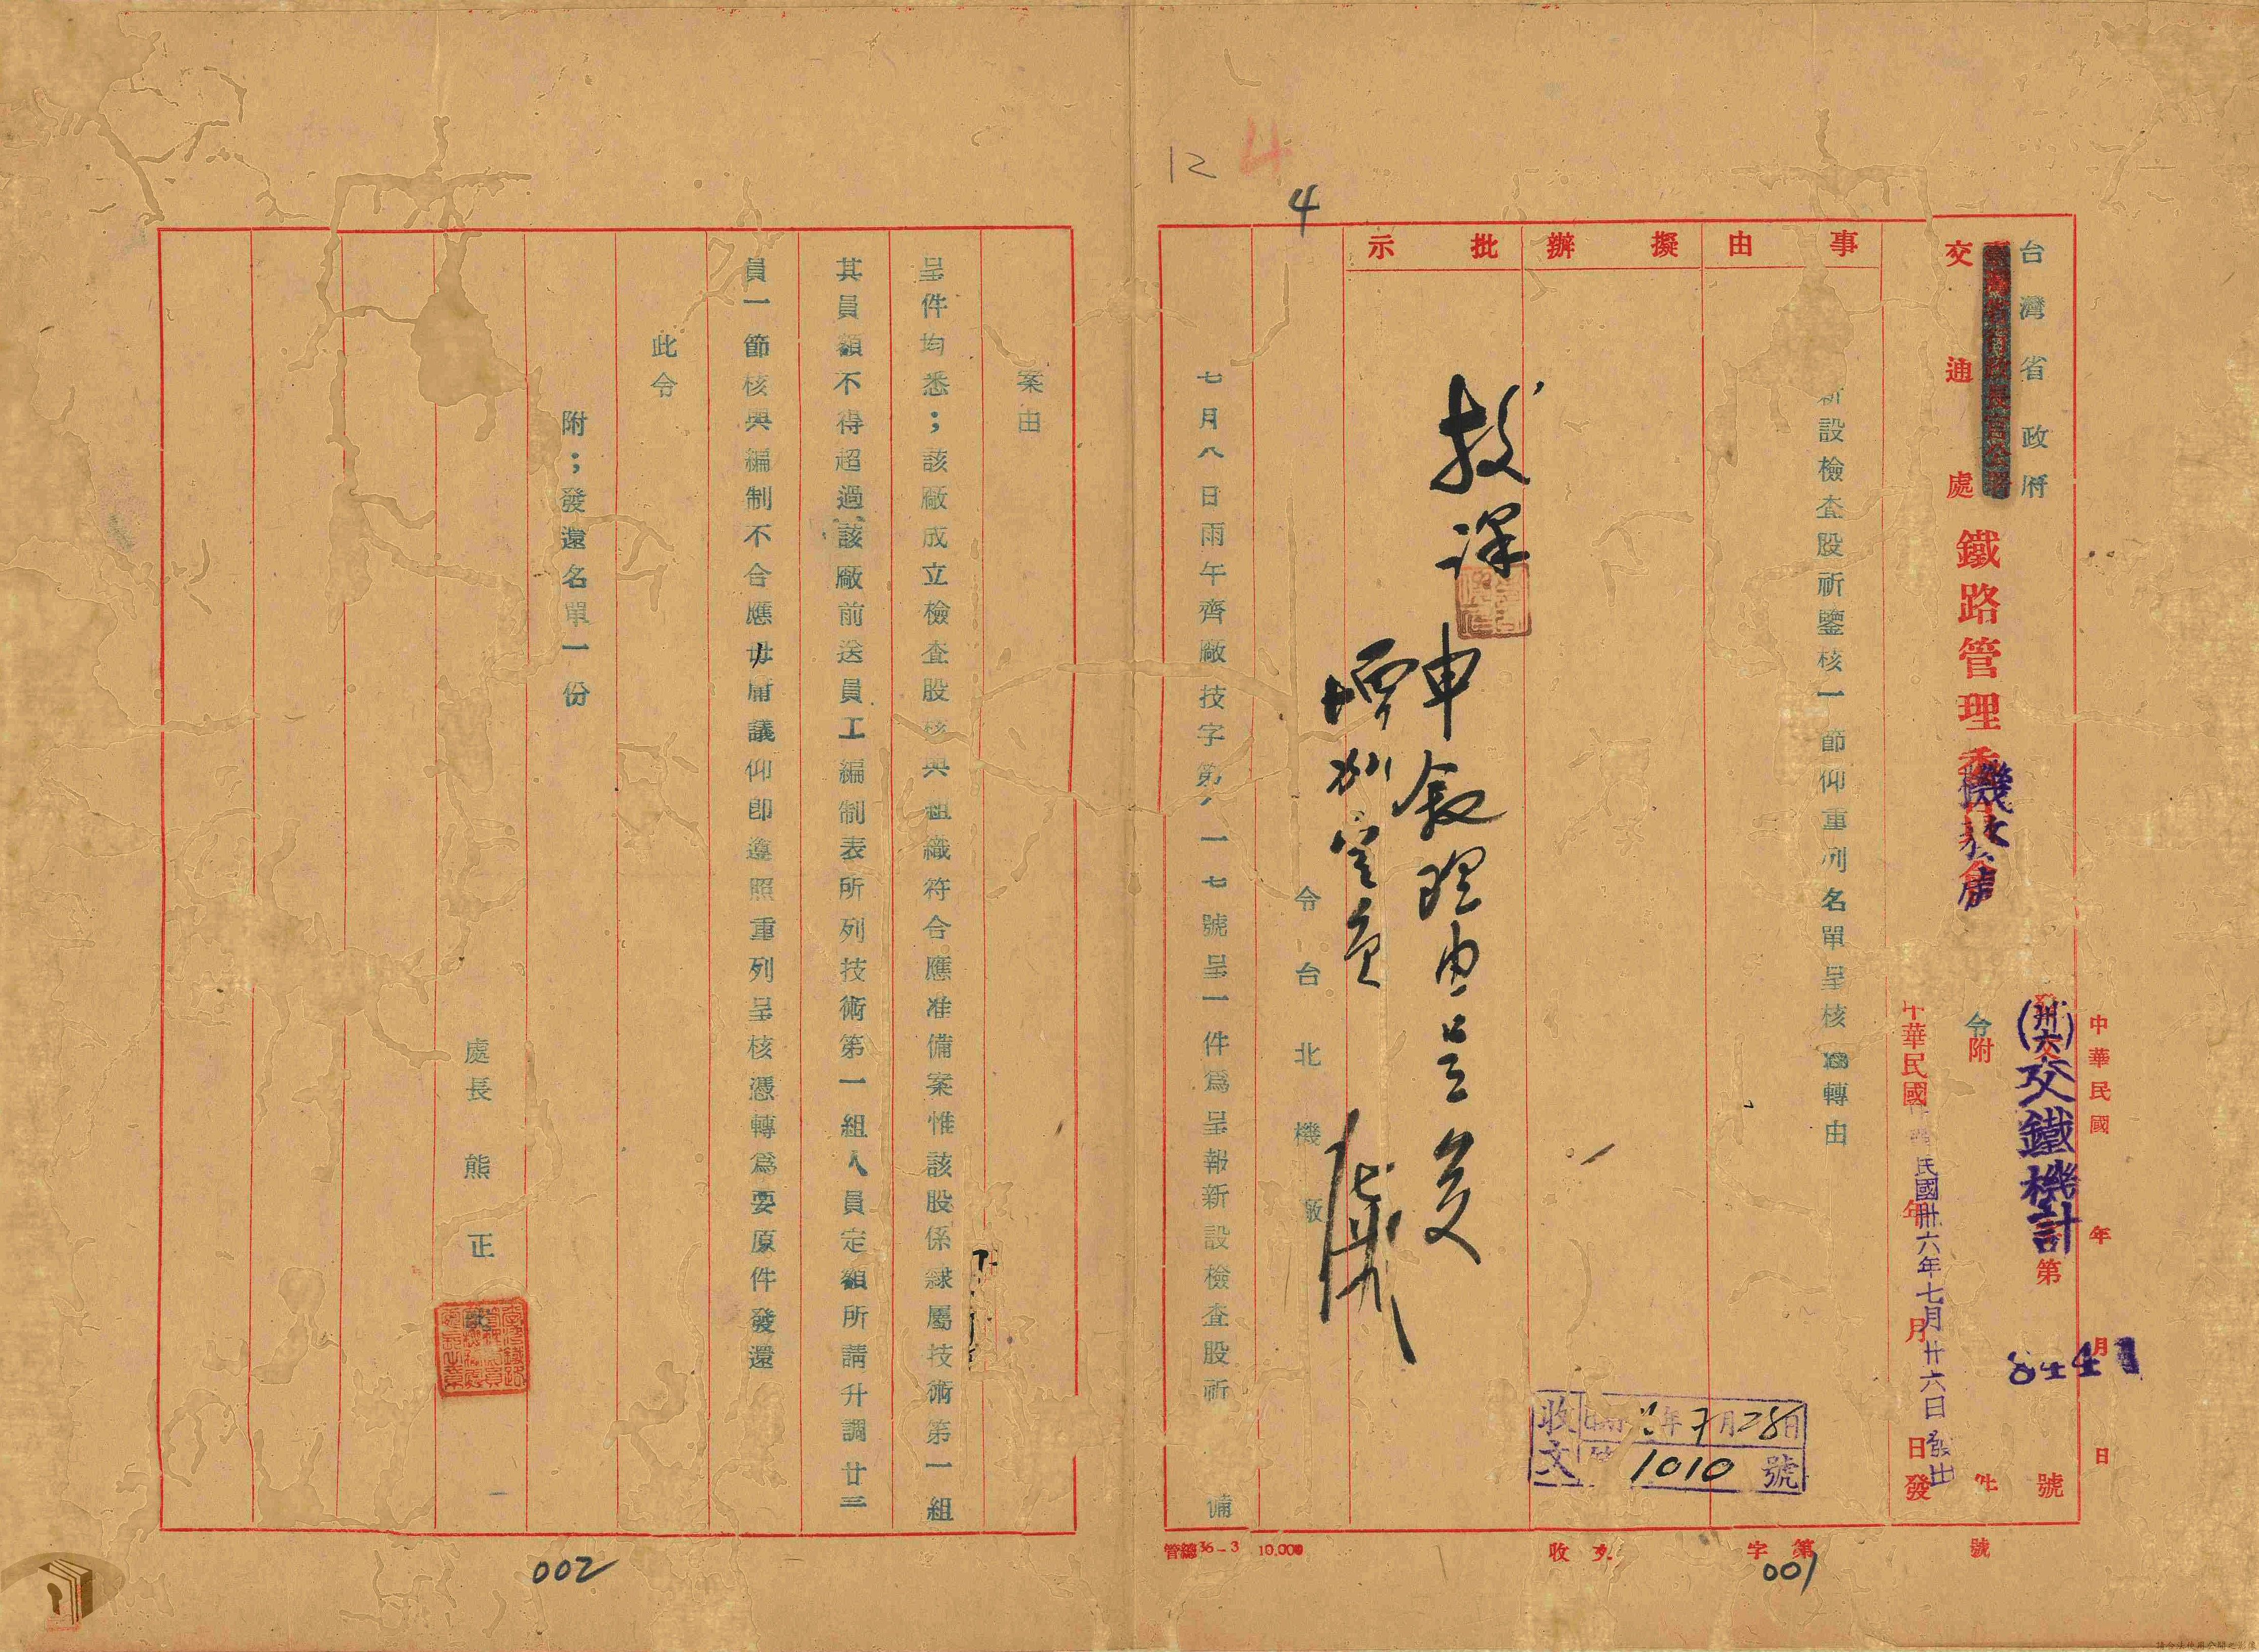 中華民國 年 月 日
台灣省政府
交通處
鐵路管理
機務處
(卅六)交鐵機計第 8441 號
令 附 件
中華民國 年 月 日發
民國卅六年七月廿六日發出
事由
擬辦
批示
新設檢查股祈鑒核一節仰重列名單呈核 轉由
申叙理由呈复
增加定員
收文 年7月28日
1010 號
令台北機廠
七月八日雨午齊廠技字第一七號呈一件爲呈報新設檢查股祈 備
案由
呈件均悉;該廠成立檢查股核與組織符合應准備案惟該股係隸屬技術第一組
其員額不得超過該廠前送員工編制表所列技術第一組人員定額所請升調廿三
員一節核與編制不合應毋庸議仰即遵照重列呈核憑轉爲要原件發還
此令
附;發還名單一份
處長 熊 正 一
12
4
4
管總36-3 10.000
收文 字第 號
001
002